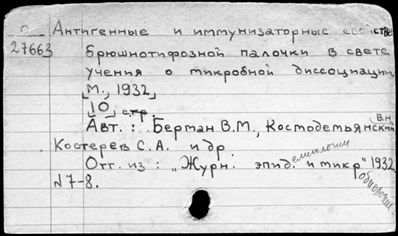 Антигенные и иммунизаторные свойства
27663 брюшнотифозной палочки в свете
учения о микробной диссоциации
М., 1932
10 стр.
Авт.: Берман В.М., Костодемьянский В.Н.
Костерев С.А. и др
Отт. из: „Журн. эпидемиологии и микробиологии" 1932,
№7-8.